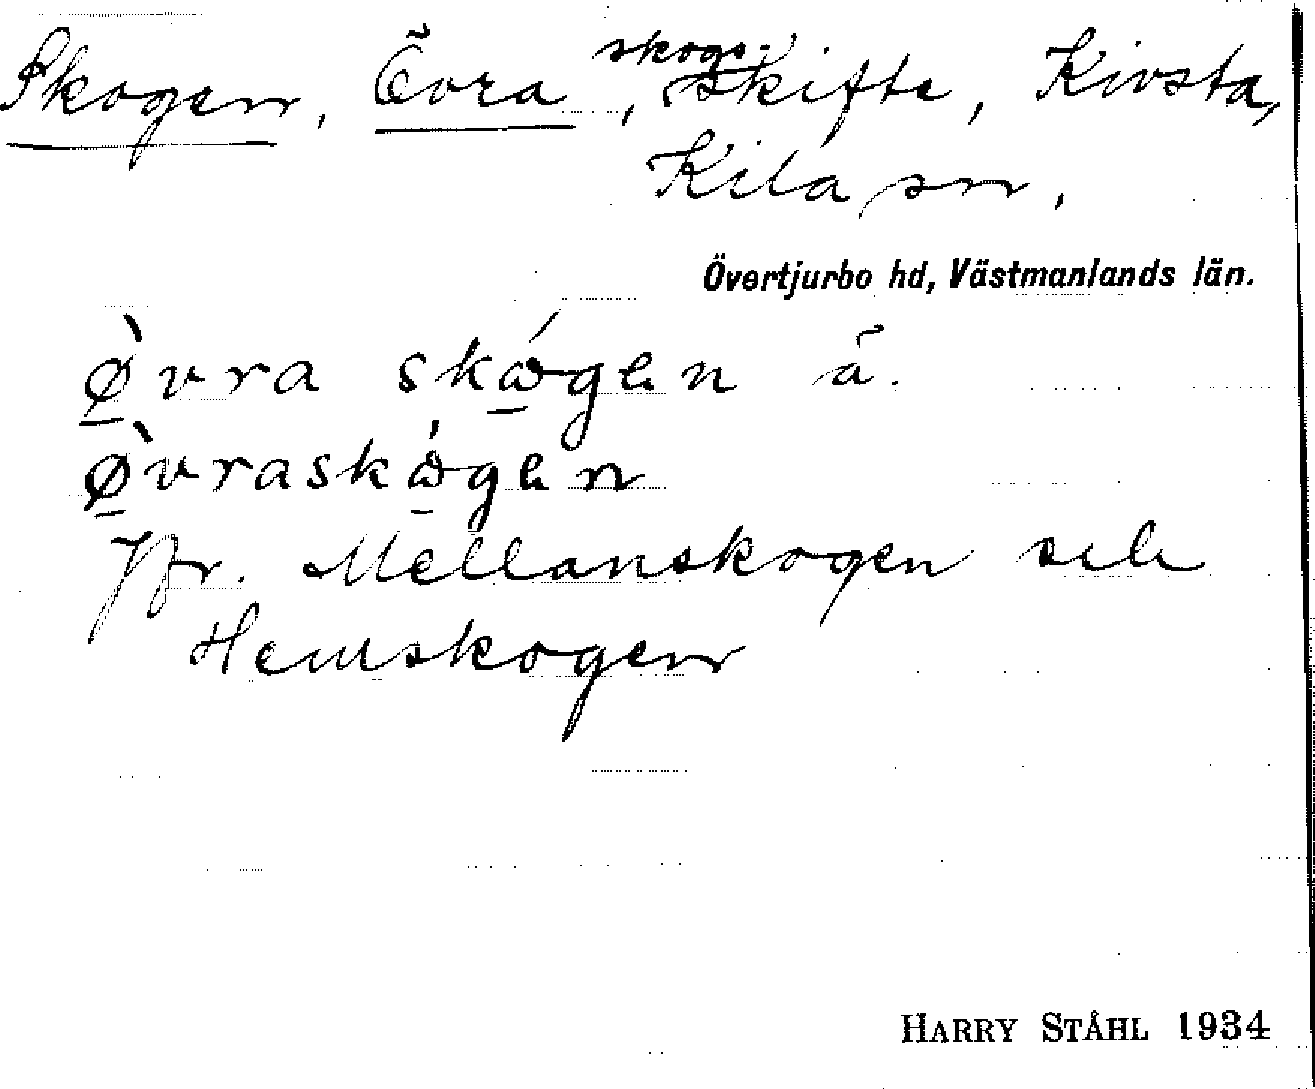 Skogen, Övra, skogsskifte, Kivsta,
Kila sn.
Övertjurbo hd, Västmanlands län.
ø̀vra skógen ä.
ø̀vraskógen
Jfr. Mellanskogen och
Hemskogen
HARRY STÅHL 1934